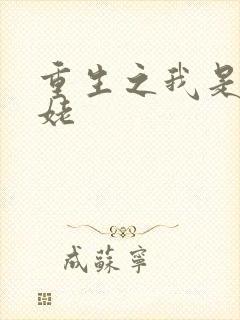 重生之我是
姥
成蘇寧